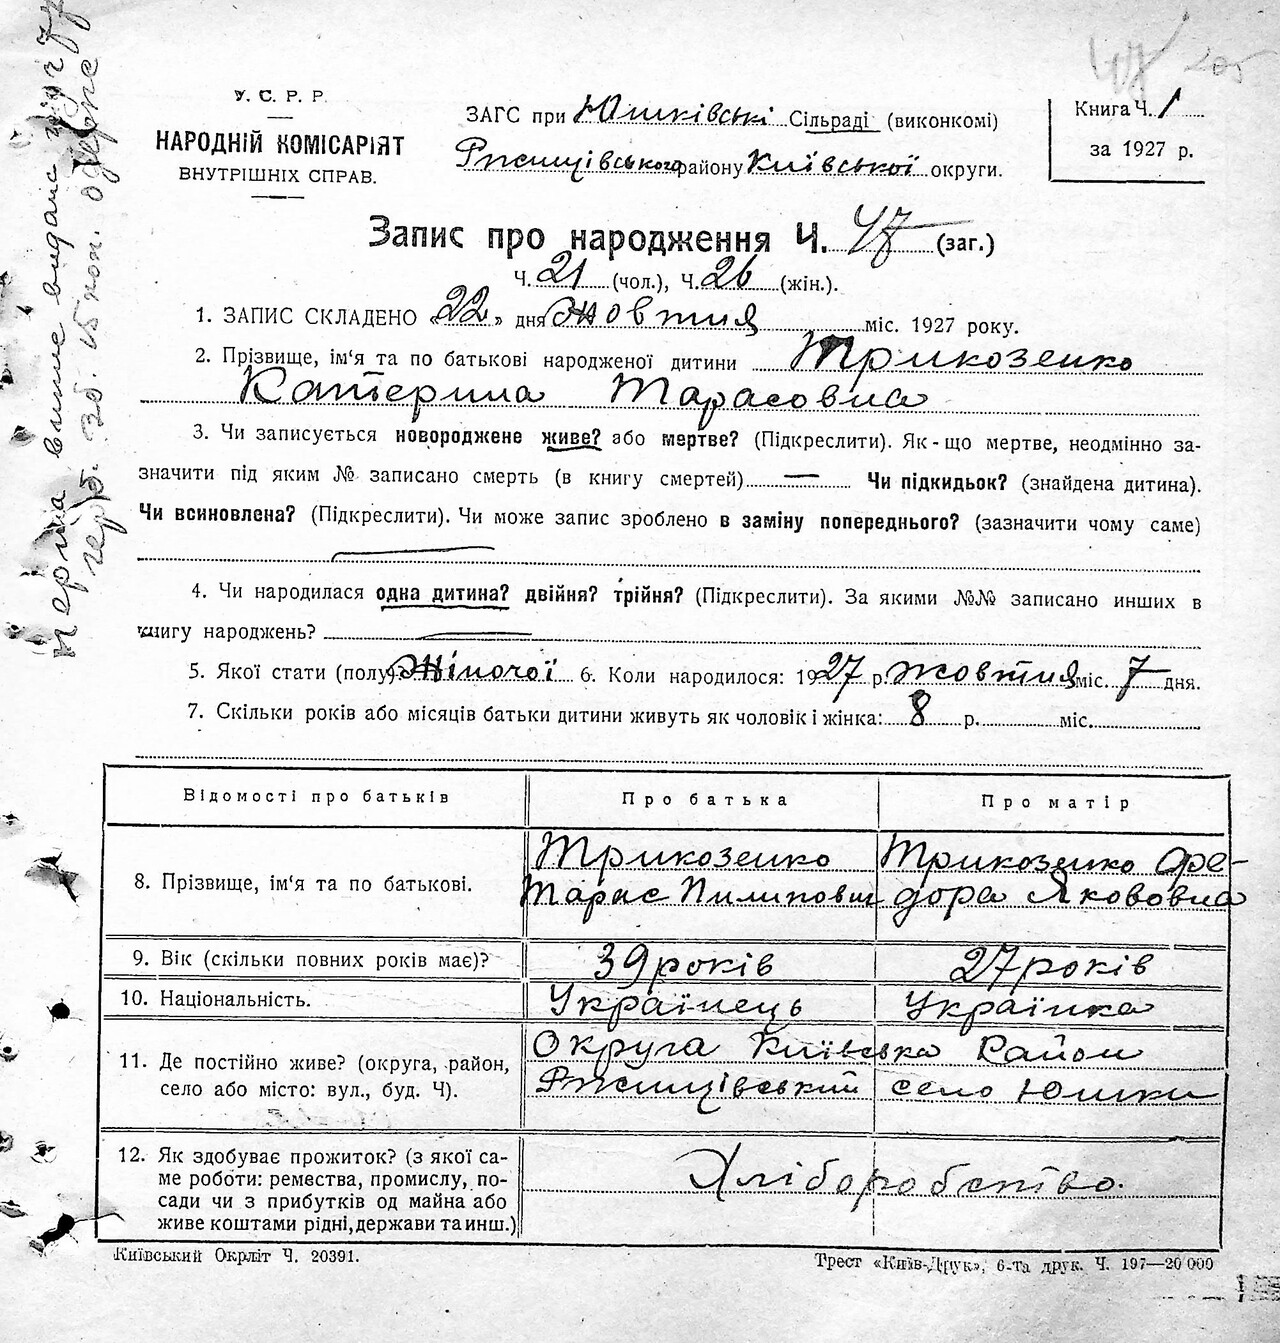 47 205
У. С. Р. Р.
НАРОДНІЙ КОМІСАРІЯТ
ВНУТРІШНІХ СПРАВ.
ЗАГС при Юшківські Сільраді (виконкомі)
Ржищівського району Київської округи.
Книга Ч. 1
за 1927 р.
Запис про народження Ч. 47 (заг.)
Ч. 21 (чол.), Ч. 26 (жін.).
1. ЗАПИС СКЛАДЕНО «22» дня Жовтня міс. 1927 року.
2. Прізвище, ім'я та по батькові народженої дитини Трикозенко
Катерина Тарасовна
3. Чи записується новороджене живе? або мертве? (Підкреслити). Як-що мертве, неодмінно за-
значити під яким № записано смерть (в книгу смертей) — Чи підкидьок? (знайдена дитина).
Чи всиновлена? (Підкреслити). Чи може запис зроблено в заміну попереднього? (зазначити чому саме)
4. Чи народилася одна дитина? двійня? трійня? (Підкреслити). За якими №№ записано инших в
книгу народжень?
5. Якої стати (полу)? Жіночої 6. Коли народилося: 1927 р. жовтня міс. 7 дня.
7. Скільки років або місяців батьки дитини живуть як чоловік і жінка: 8 р. міс.
Відомості про батьків Про батька Про матір
8. Прізвище, ім'я та по батькові.
Трикозенко
Тарас Пилипович
Трикозенко Фре-
дора Яковovна
9. Вік (скільки повних років має)? 39 років 27 років
10. Національність. Українець Українка
11. Де постійно живе? (округа, район,
село або місто: вул., буд. Ч).
Округа Київська Район
Ржищівський село Юшки
12. Як здобуває прожиток? (з якої са-
ме роботи: ремества, промислу, по-
сади чи з прибутків од майна або
живе коштами рідні, держави та инш.)
Хліборобство.
Київський Окрліт Ч. 20391.
Трест «Київ-Друк», 6-та друк. Ч. 197—20 000